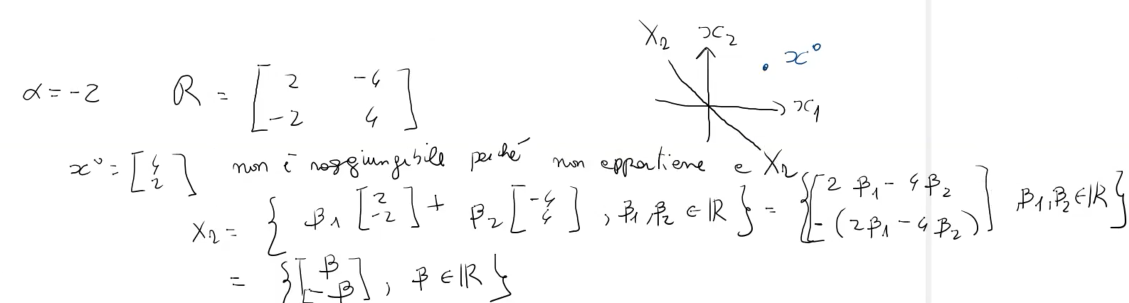 X₂ x₂
x°
α = -2 R = [ 2 -4 ; -2 4 ]
x₁
x° = [ 4 ; 2 ] non è raggiungibile perché non appartiene a X₂
X₂
X₂ = { β₁ [ 2 ; -2 ] + β₂ [ -4 ; 4 ] , β₁, β₂ ∈ ℝ } = { [ 2β₁ - 4β₂ ; -(2β₁ - 4β₂) ] β₁, β₂ ∈ ℝ }
= { [ β ; -β ] , β ∈ ℝ }